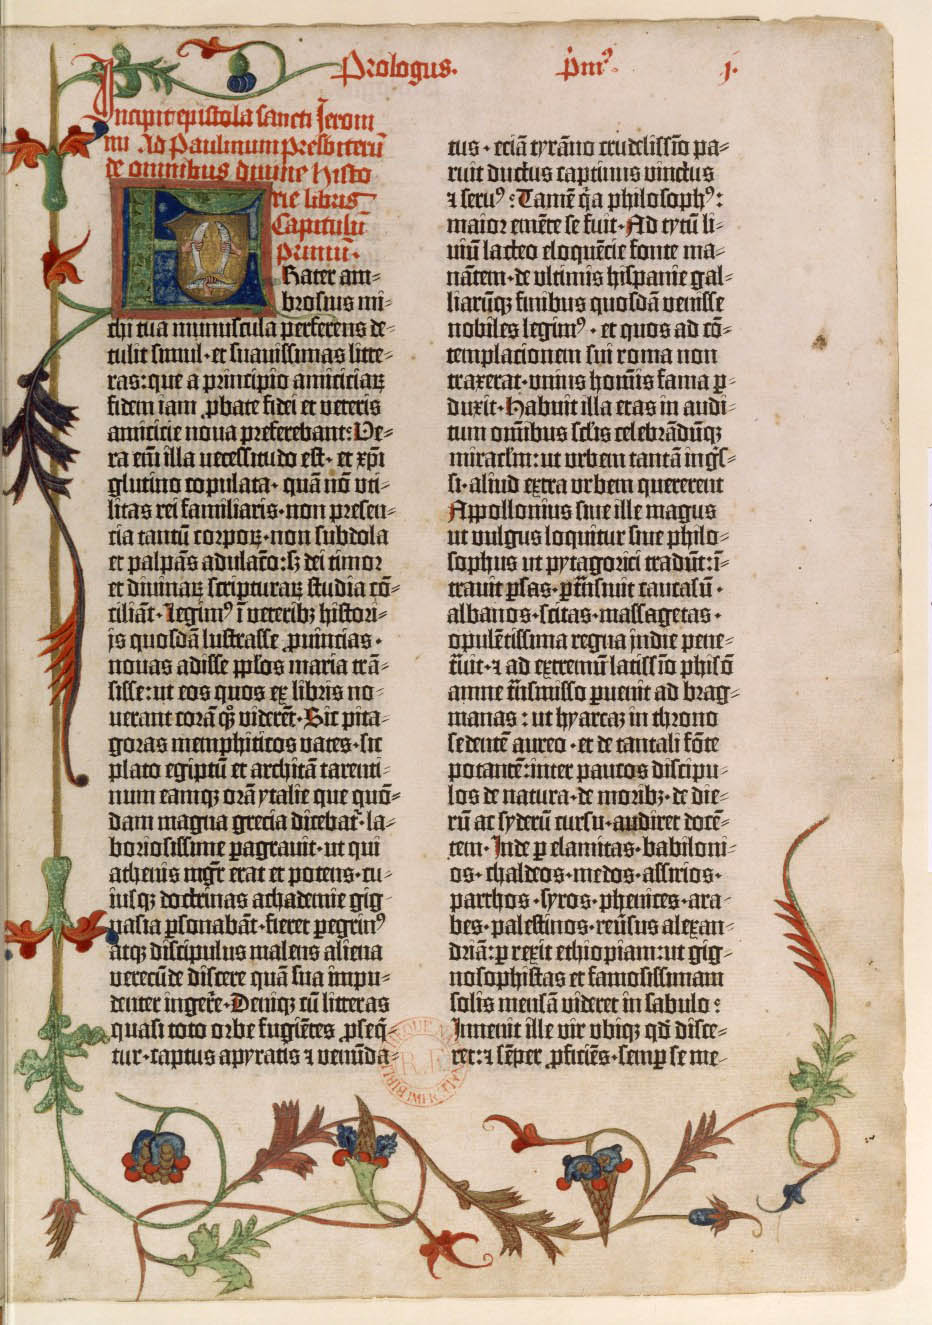 Prologus. p̄mꝰ. j.
Incipit epistola sancti Ieroni
mi Ad Paulinum presbiterū
de omnibus diuine histo
rie libris
Capitulū
primū.
Frater am⸗
brosius mi⸗
chi tua munuscula perferens de⸗
tulit simul· et suauissimas litte⸗
ras: que a principio amiciciaꝝ
fidem iam ꝓbate fidei et veteris
amicicie noua preferebant: Ve⸗
ra eni̅ illa necessitudo est· et xp̅i
glutino copulata· quā nō vti⸗
litas rei familiaris· non presen⸗
cia tantū corpoꝝ· non subdola
et palpās adulacō: sꝫ dei timor
et diuinaꝝ scripturaꝝ studia cō⸗
ciliāt· Legimꝰ ī veteribꝫ histori⸗
is quosdā lustrasse ꝓuincias·
nouas adisse pp̅los maria trā⸗
sisse: ut eos quos ex libris no⸗
uerant corā qꝫ viderēt· Sic pita⸗
goras memphiticos vates· sic
plato egiptū et architā tarenti⸗
num eamqꝫ orā ytalie que quō⸗
dam magna grecia dicebat̅· la⸗
boriosissime ꝑagrauit· ut qui
athenis mgr̅ erat et potens· cu⸗
iusqꝫ doctrinas achademie gig
nasia ꝑsonabāt· fieret ꝑegrinꝰ
atqꝫ discipulus malens aliena
verecūde discere quā sua impu⸗
denter ingere̅· Deniqꝫ cū litteras
quasi toto orbe fugiētes ꝓseqͣ⸗
tur· captus a pyratis ⁊ venūda⸗
tus· eciā tyrāno crudelissīo pa⸗
ruit ductus captiuus vinctus
⁊ seruꝰ: Tamē qͥa philosophꝰ:
maior emēte se fuit· Ad tytū li⸗
uiū lacteo eloquēcie fonte ma⸗
nātem· de vltimis hispanie gal⸗
liarūqꝫ finibus quosdā venisse
nobiles legimꝰ· et quos ad cō⸗
templacionem sui roma non
traxerat· vnius homīs fama ꝑ⸗
duxit· Habuit illa etas in audi⸗
tum om̅ibus sc̅lis celebrādūqꝫ
miraclm̅: ut vrbem tantā ingͤs⸗
si· aliud extra vrbem quererent
Appollonius siue ille magus
ut vulgus loquitur siue philo⸗
sophus ut pytagorici tradūt: ī⸗
trauit ꝑsas· ꝑtn̅siuit caucasū·
albanos· scitas· massagetas·
opulētissima regna indie pene⸗
tr̅uit· ⁊ ad extremū latissīo phisō
amne tn̅smisso ꝑuenit ad brag⸗
manas: ut hyarcaꝫ in throno
sedentē aureo· et de tantali fōte
potantē: inter paucos discipu⸗
los de natura· de moribꝫ· de die⸗
rū ac syderū cursu· audiret docē⸗
tem· Inde ꝑ elamitas· babiloni⸗
os· chaldeos· medos· assirios·
parthos· syros· phenices· ara⸗
bes· palestinos· reu̅sus alexan⸗
driā: ꝑrexit ethiopiam: ut gig⸗
nosophistas et famosissimam
solis mensā videret in sabulo:
Inuenit ille vir vbiqꝫ qd̅ disce⸗
ret: ⁊ sēper ꝓficiēs· semꝑ se me⸗